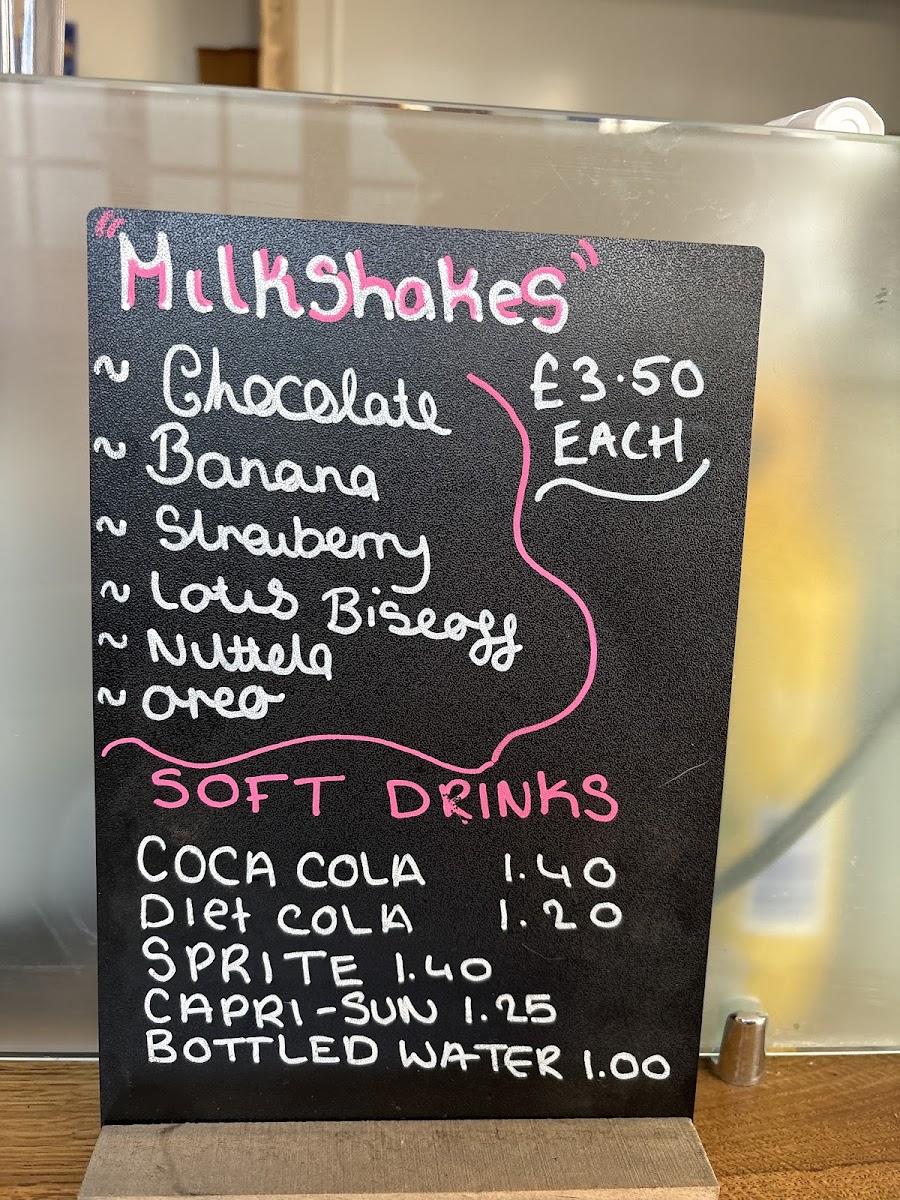 "Milkshakes"
~ Chocolate
~ Banana
~ Strawberry
~ Lotus Biscoff
~ Nuttela
~ oreo
£3.50
EACH
SOFT DRINKS
COCA COLA 1.40
Diet COLA 1.20
SPRITE 1.40
CAPRI-SUN 1.25
BOTTLED WATER 1.00